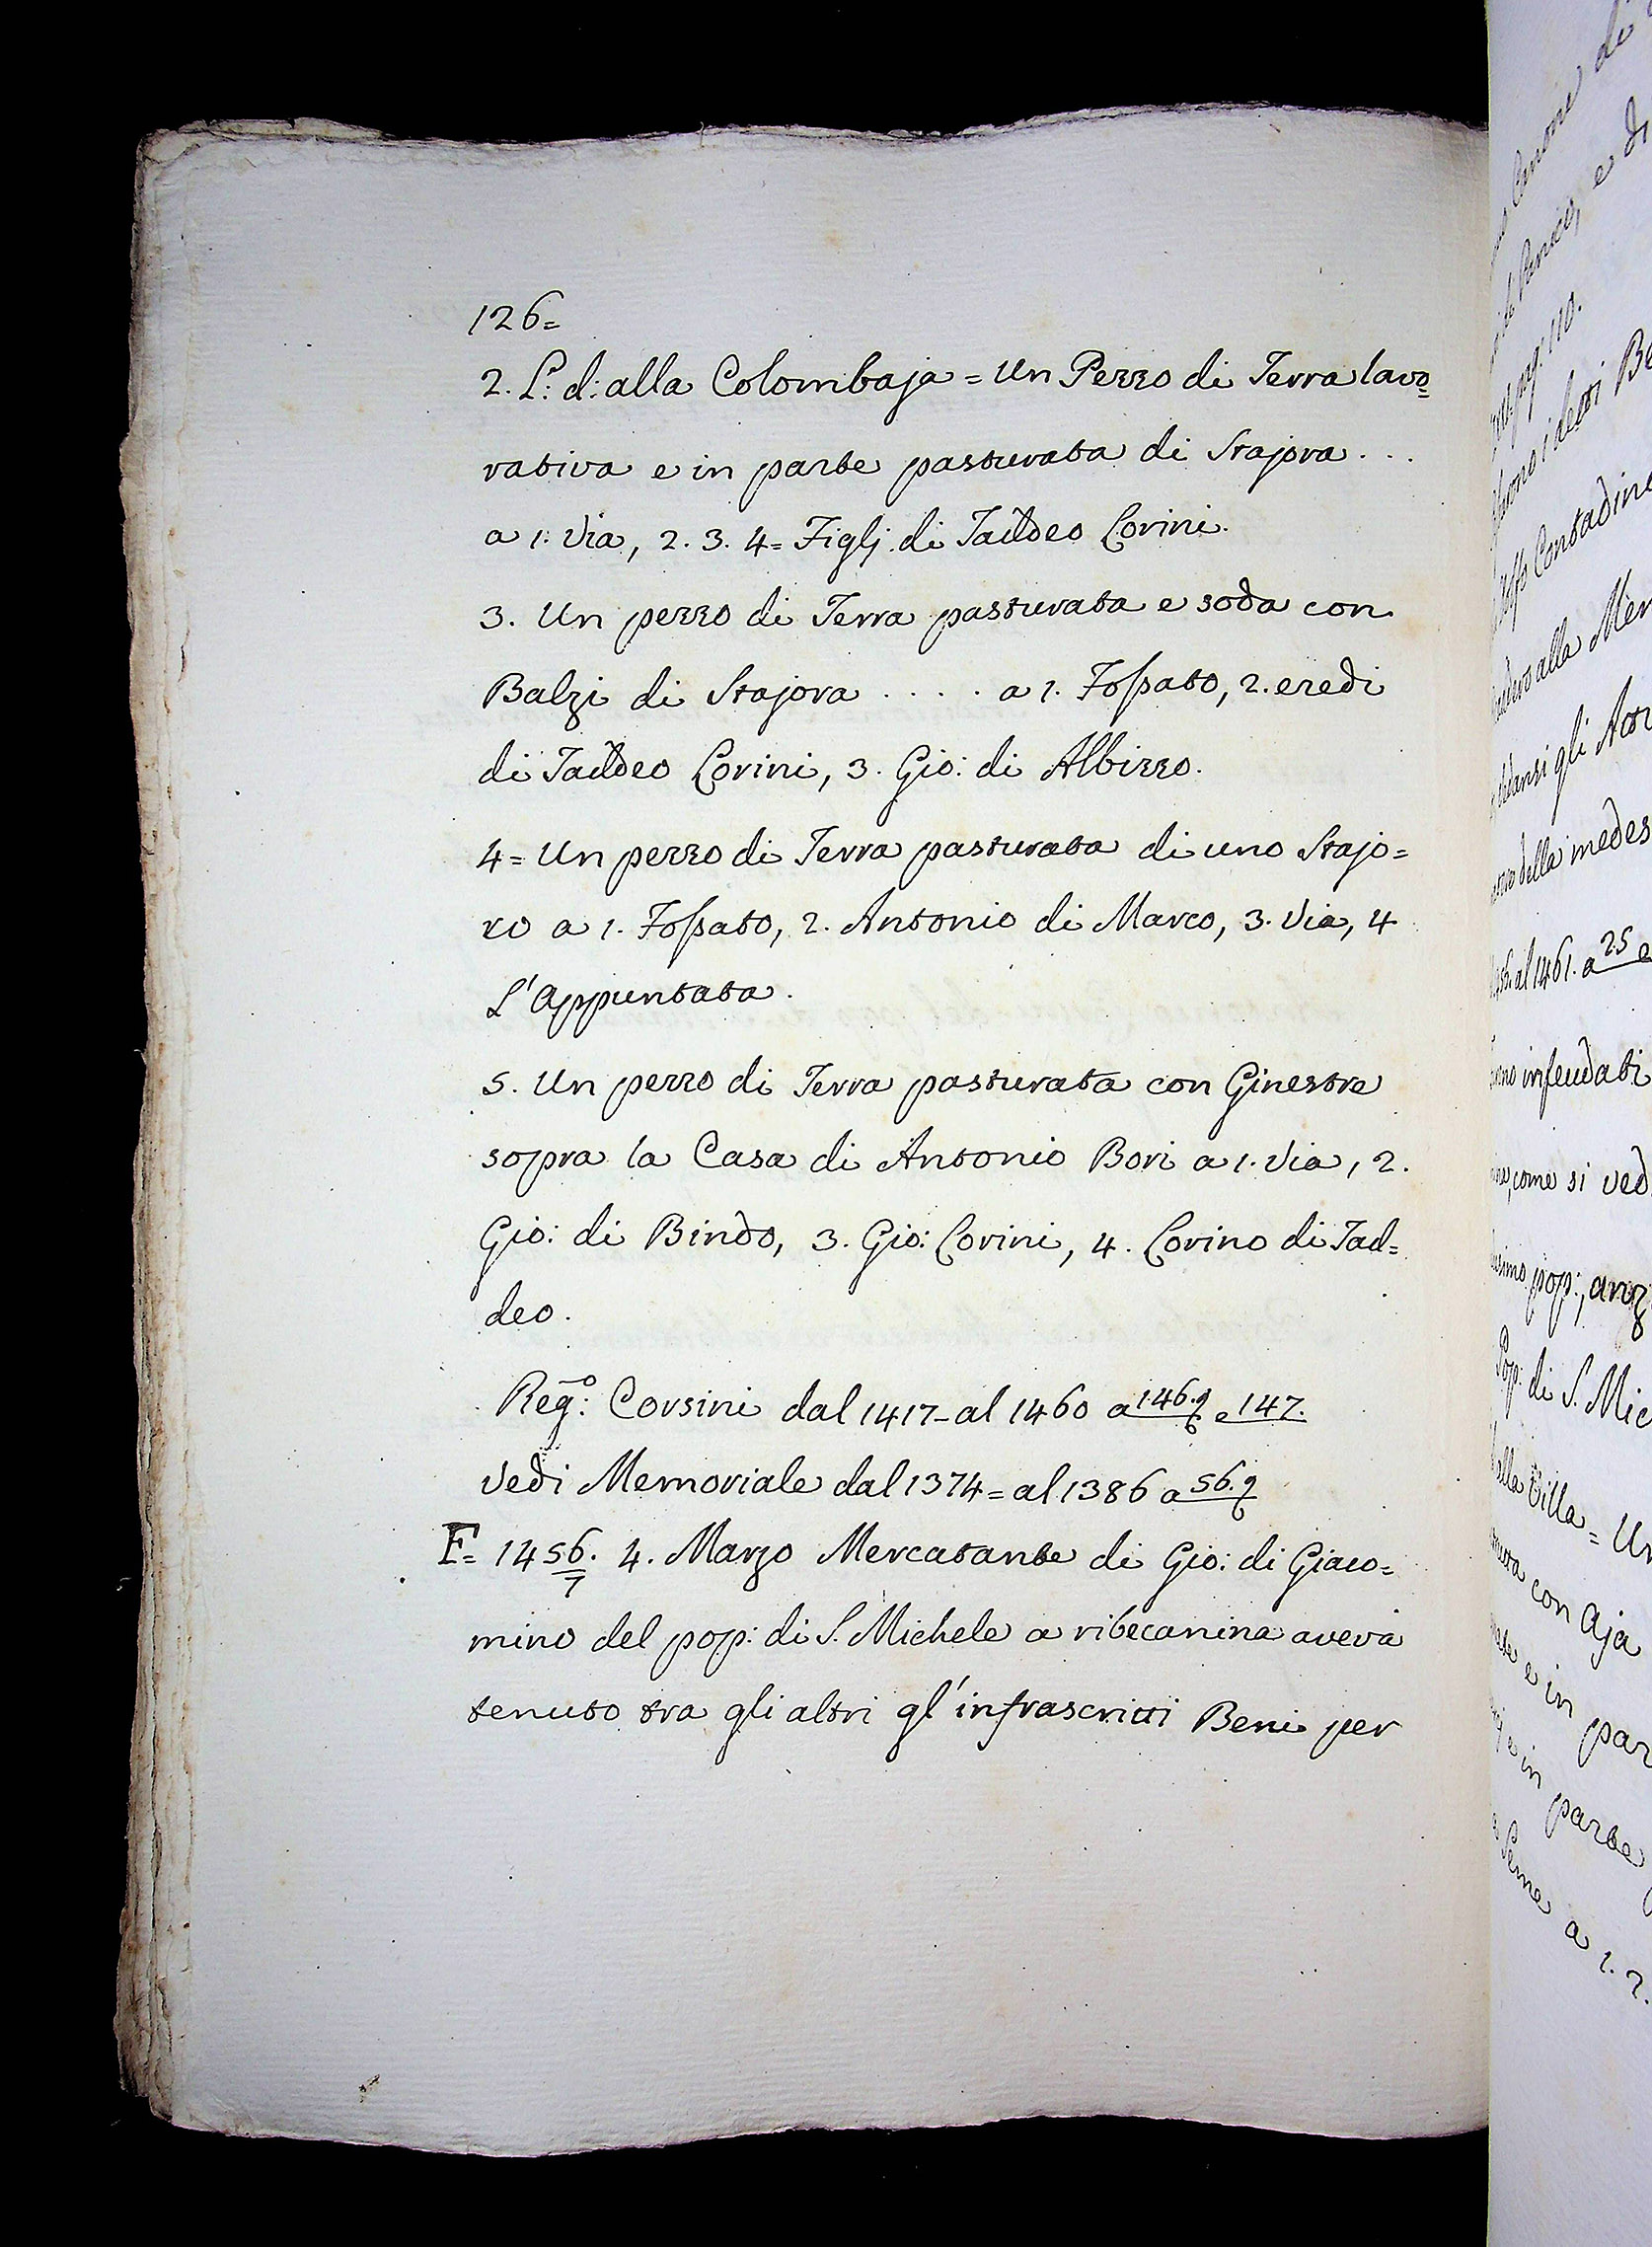 126=
2. L.º d: alla Colombaja = Un Pezzo di Terra lavo=
rativa e in parte pasturata di Stajora . . .
a 1. Via, 2. 3. 4= Figlj di Taddeo Corini.
3. Un pezzo di Terra pasturata e soda con
Balzi di Stajora . . . . a 1. Fossato, 2. eredi
di Taddeo Corini, 3. Gio: di Albizzo.
4= Un pezzo di Terra pasturata di uno Stajo=
ro a 1. Fossato, 2. Antonio di Marco, 3. Via, 4
L'Appuntata.
5. Un pezzo di Terra pasturata con Ginestre
sopra la Casa di Antonio Bori a 1. Via, 2.
Gio: di Bindo, 3. Gio: Corini, 4. Corino di Tad=
deo.
Reg:º Corsini dal 1417- al 1460 a 146. e 147.
Vedi Memoriale dal 1374= al 1386 a 56.
F= 1456/7. 4. Marzo Mercatante di Gio: di Giaco=
mino del pop: di S. Michele a ribecanina aveva
tenuto tra gli altri gl'infrascritti Beni per
di
e di
pag: 110.
i detti
Contadin
alla
gli
della medes
al 1461. a 25 e
infeudati
come si ved
pop:, anz
di S. Mic
Villa = Un
con Aja
e in par
e in parte
a 1. 2.